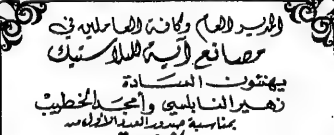 المدير العام وكافة العاملين في
مصانع آية للبلاستيك
يهنئون السادة
زهير النابلسي وأمجد الخطيب
بمناسبة صدور العدد الأول من